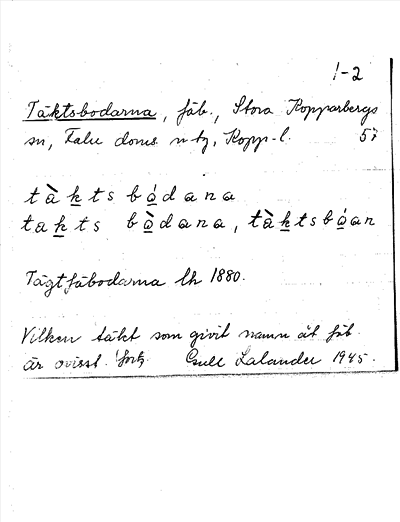 1-2
Täktsbodarna, fäb., Stora Kopparbergs
sn, Falu doms. ntg, Kopp. l. 57
tàkts bódana
takts bòdana, tàktsbóan
Tägtfäbodarna Ch 1880.
Vilken täkt som givit namn åt fäb.
är ovisst. Gull Lalander 1945.